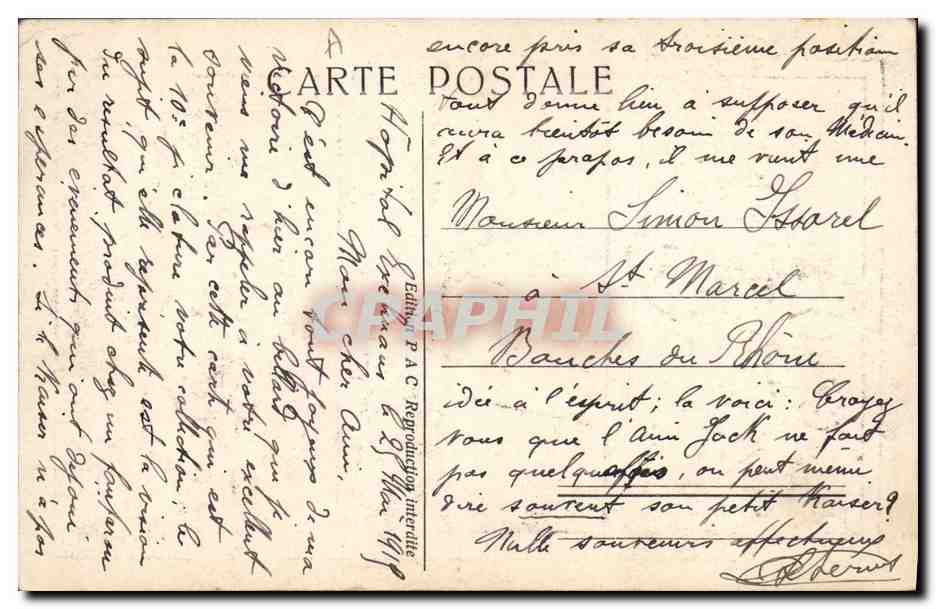 CARTE POSTALE
Hôpital le 25 Mai 1915
Mon cher Ami,
C'est encore tout joyeux de ma
victoire d'hier au billard que je
viens me rappeler à votre excellent
souvenir. Par cette carte qui est
la 10e je clature votre collection; le
sujet qu'elle représente est la vision
du résultat produit chez un
par des évènements qui ont déjoué
ses espérances. Si le Kaiser n'a pas
encore pris sa troisième position
tout donne lieu à supposer qu'il
aura bientôt besoin de son Médecin.
Et à ce propos, il me vient une
idée à l'esprit; la voici: Croyez
vous que l'Ami Jack ne fait
pas quelquefois, on peut même
dire souvent son petit Kaiser?
Mille souvenirs affectueux
Monsieur Simon Issorel
à St. Marcel
Bouches du Rhône
Edition P A C Reproduction interdite
CPAPHIL